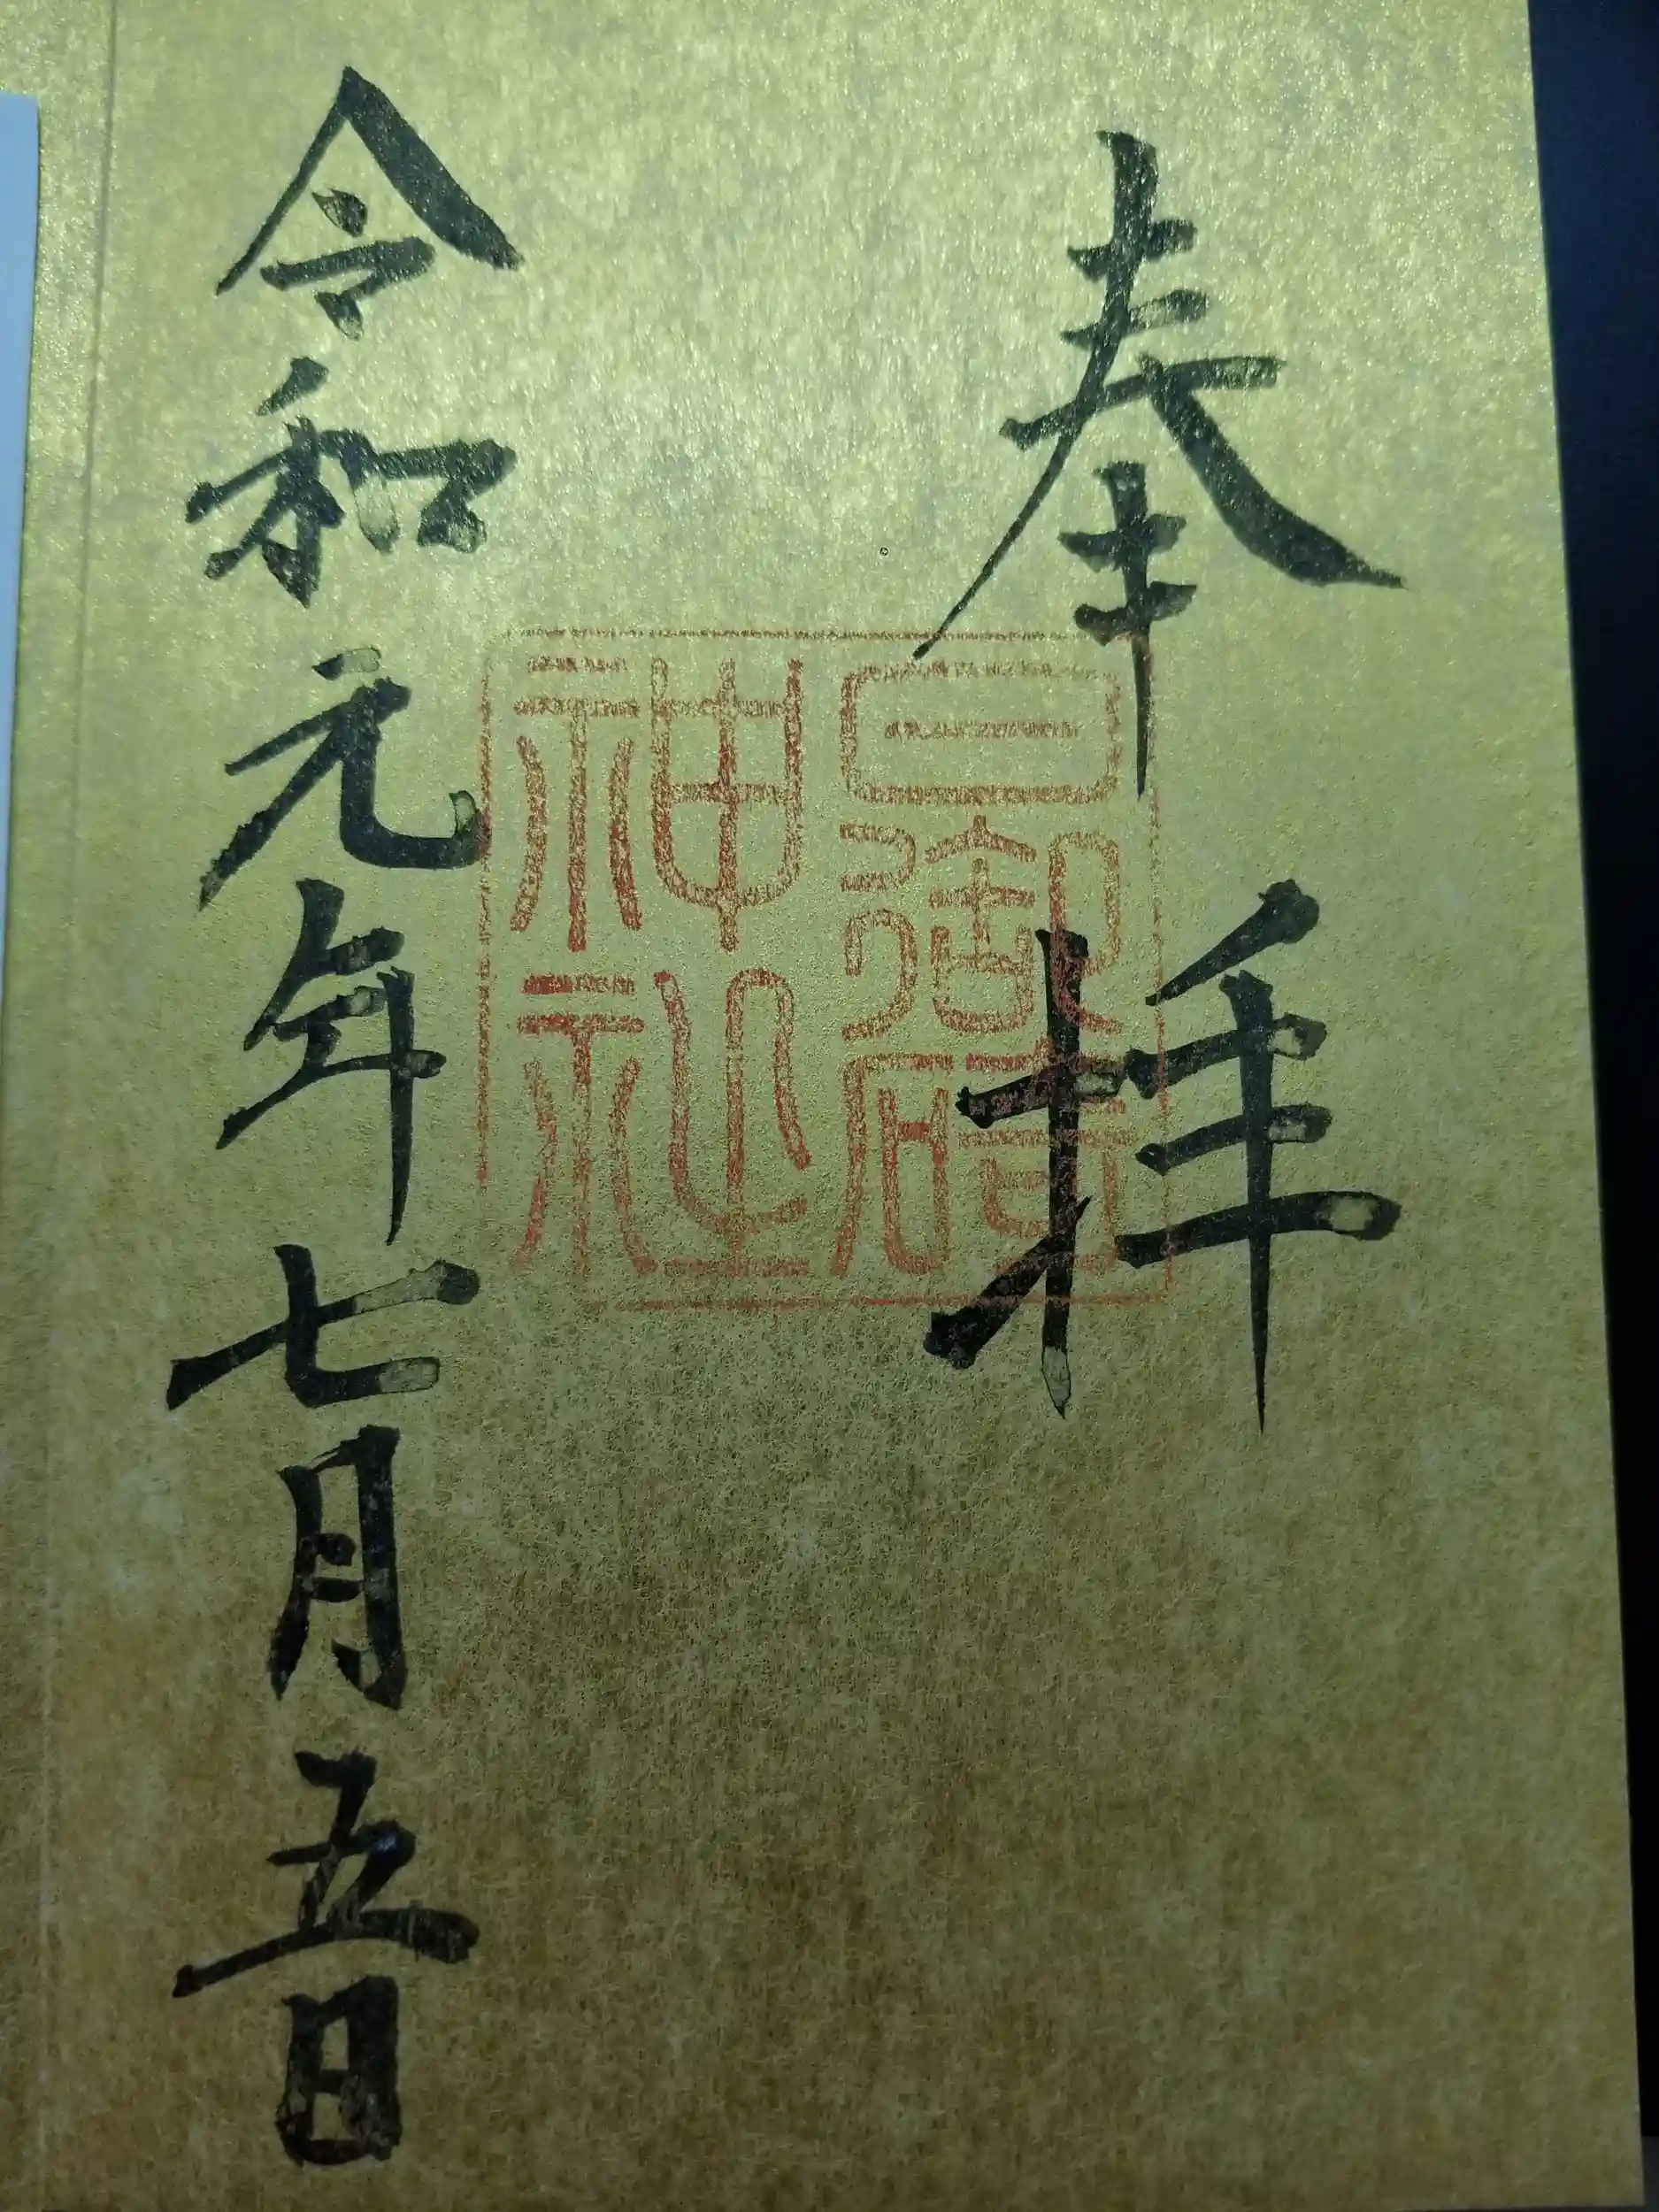 奉拝
日御碕
神社
令和元年七月五日